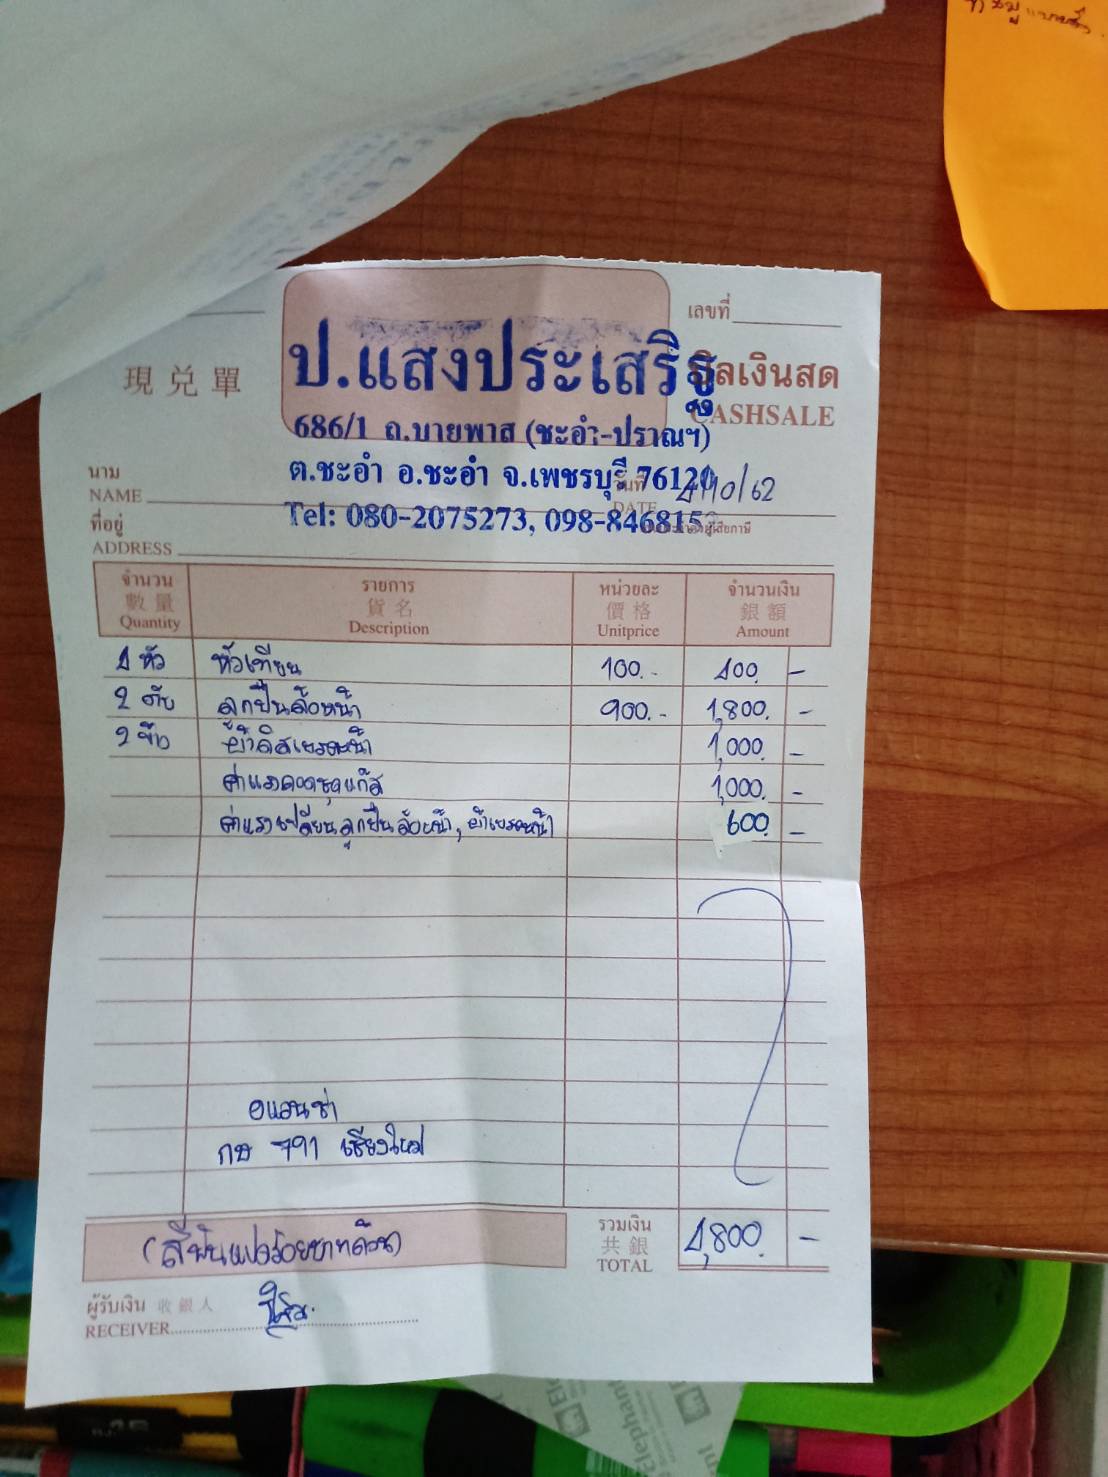 เลขที่
現兌單
ป.แสงประเสริฐ
บิลเงินสด
CASHSALE
686/1 ถ.บายพาส (ชะอำ-ปราณฯ)
ต.ชะอำ อ.ชะอำ จ.เพชรบุรี 76120
นาม
NAME
วันที่
DATE
4/10/62
Tel: 080-2075273, 098-846815
ที่อยู่
ADDRESS
จำนวน รายการ หน่วยละ จำนวนเงิน
數量 貨名 價格 銀額
Quantity Description Unitprice Amount
4 หัว หัวเทียน 100.- 400. -
2 ตับ ลูกปืนล้อหน้า 900.- 1,800. -
2 ข้าง ผ้าดิสเบรคหน้า 1,000. -
ค่าแรงถอดชุดแก๊ส 1,000. -
ค่าแรงเปลี่ยนลูกปืนล้อหน้า, ผ้าเบรคหน้า 600. -
อแวนซ่า
กษ 791 เชียงใหม่
(สี่พันแปดร้อยบาทถ้วน)
รวมเงิน
共銀
TOTAL
4,800. -
ผู้รับเงิน 收銀人
RECEIVER
Elephant